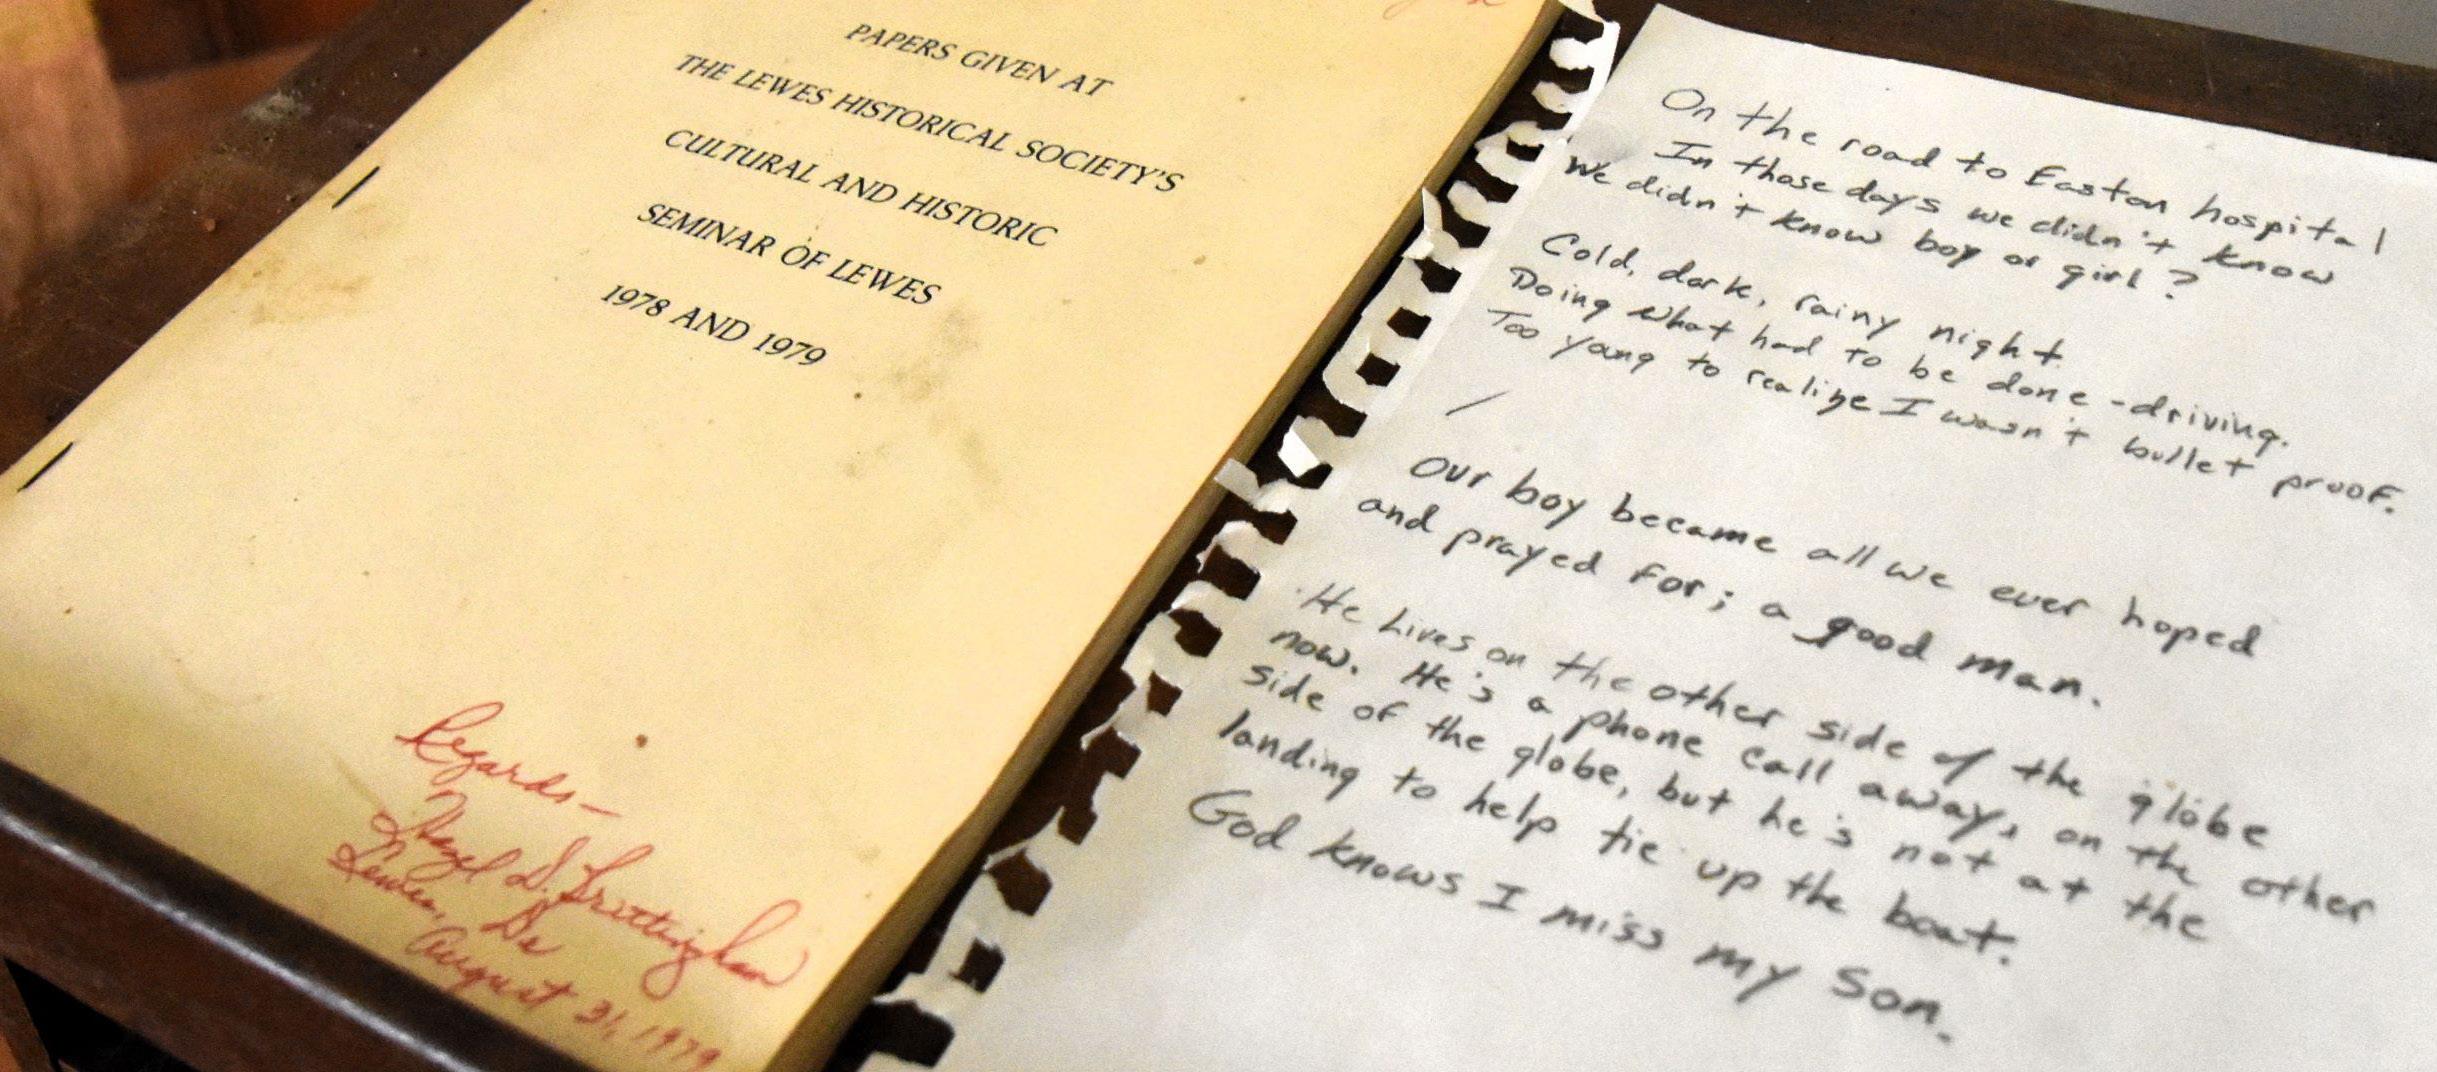 PAPERS GIVEN AT
THE LEWES HISTORICAL SOCIETY'S
CULTURAL AND HISTORIC
SEMINAR OF LEWES
1978 AND 1979
Regards—
Hazel D. Brittingham
Lewes, De
August 31, 1979
On the road to Easton hospital
In those days we didn't know
We didn't know boy or girl?
Cold, dark, rainy night
Doing what had to be done - driving.
Too young to realize I wasn't bullet proof.
Our boy became all we ever hoped
and prayed for; a good man.
He lives on the other side of the globe
now. He's a phone call away, on the other
side of the globe, but he's not at the
landing to help tie up the boat.
God knows I miss my son.